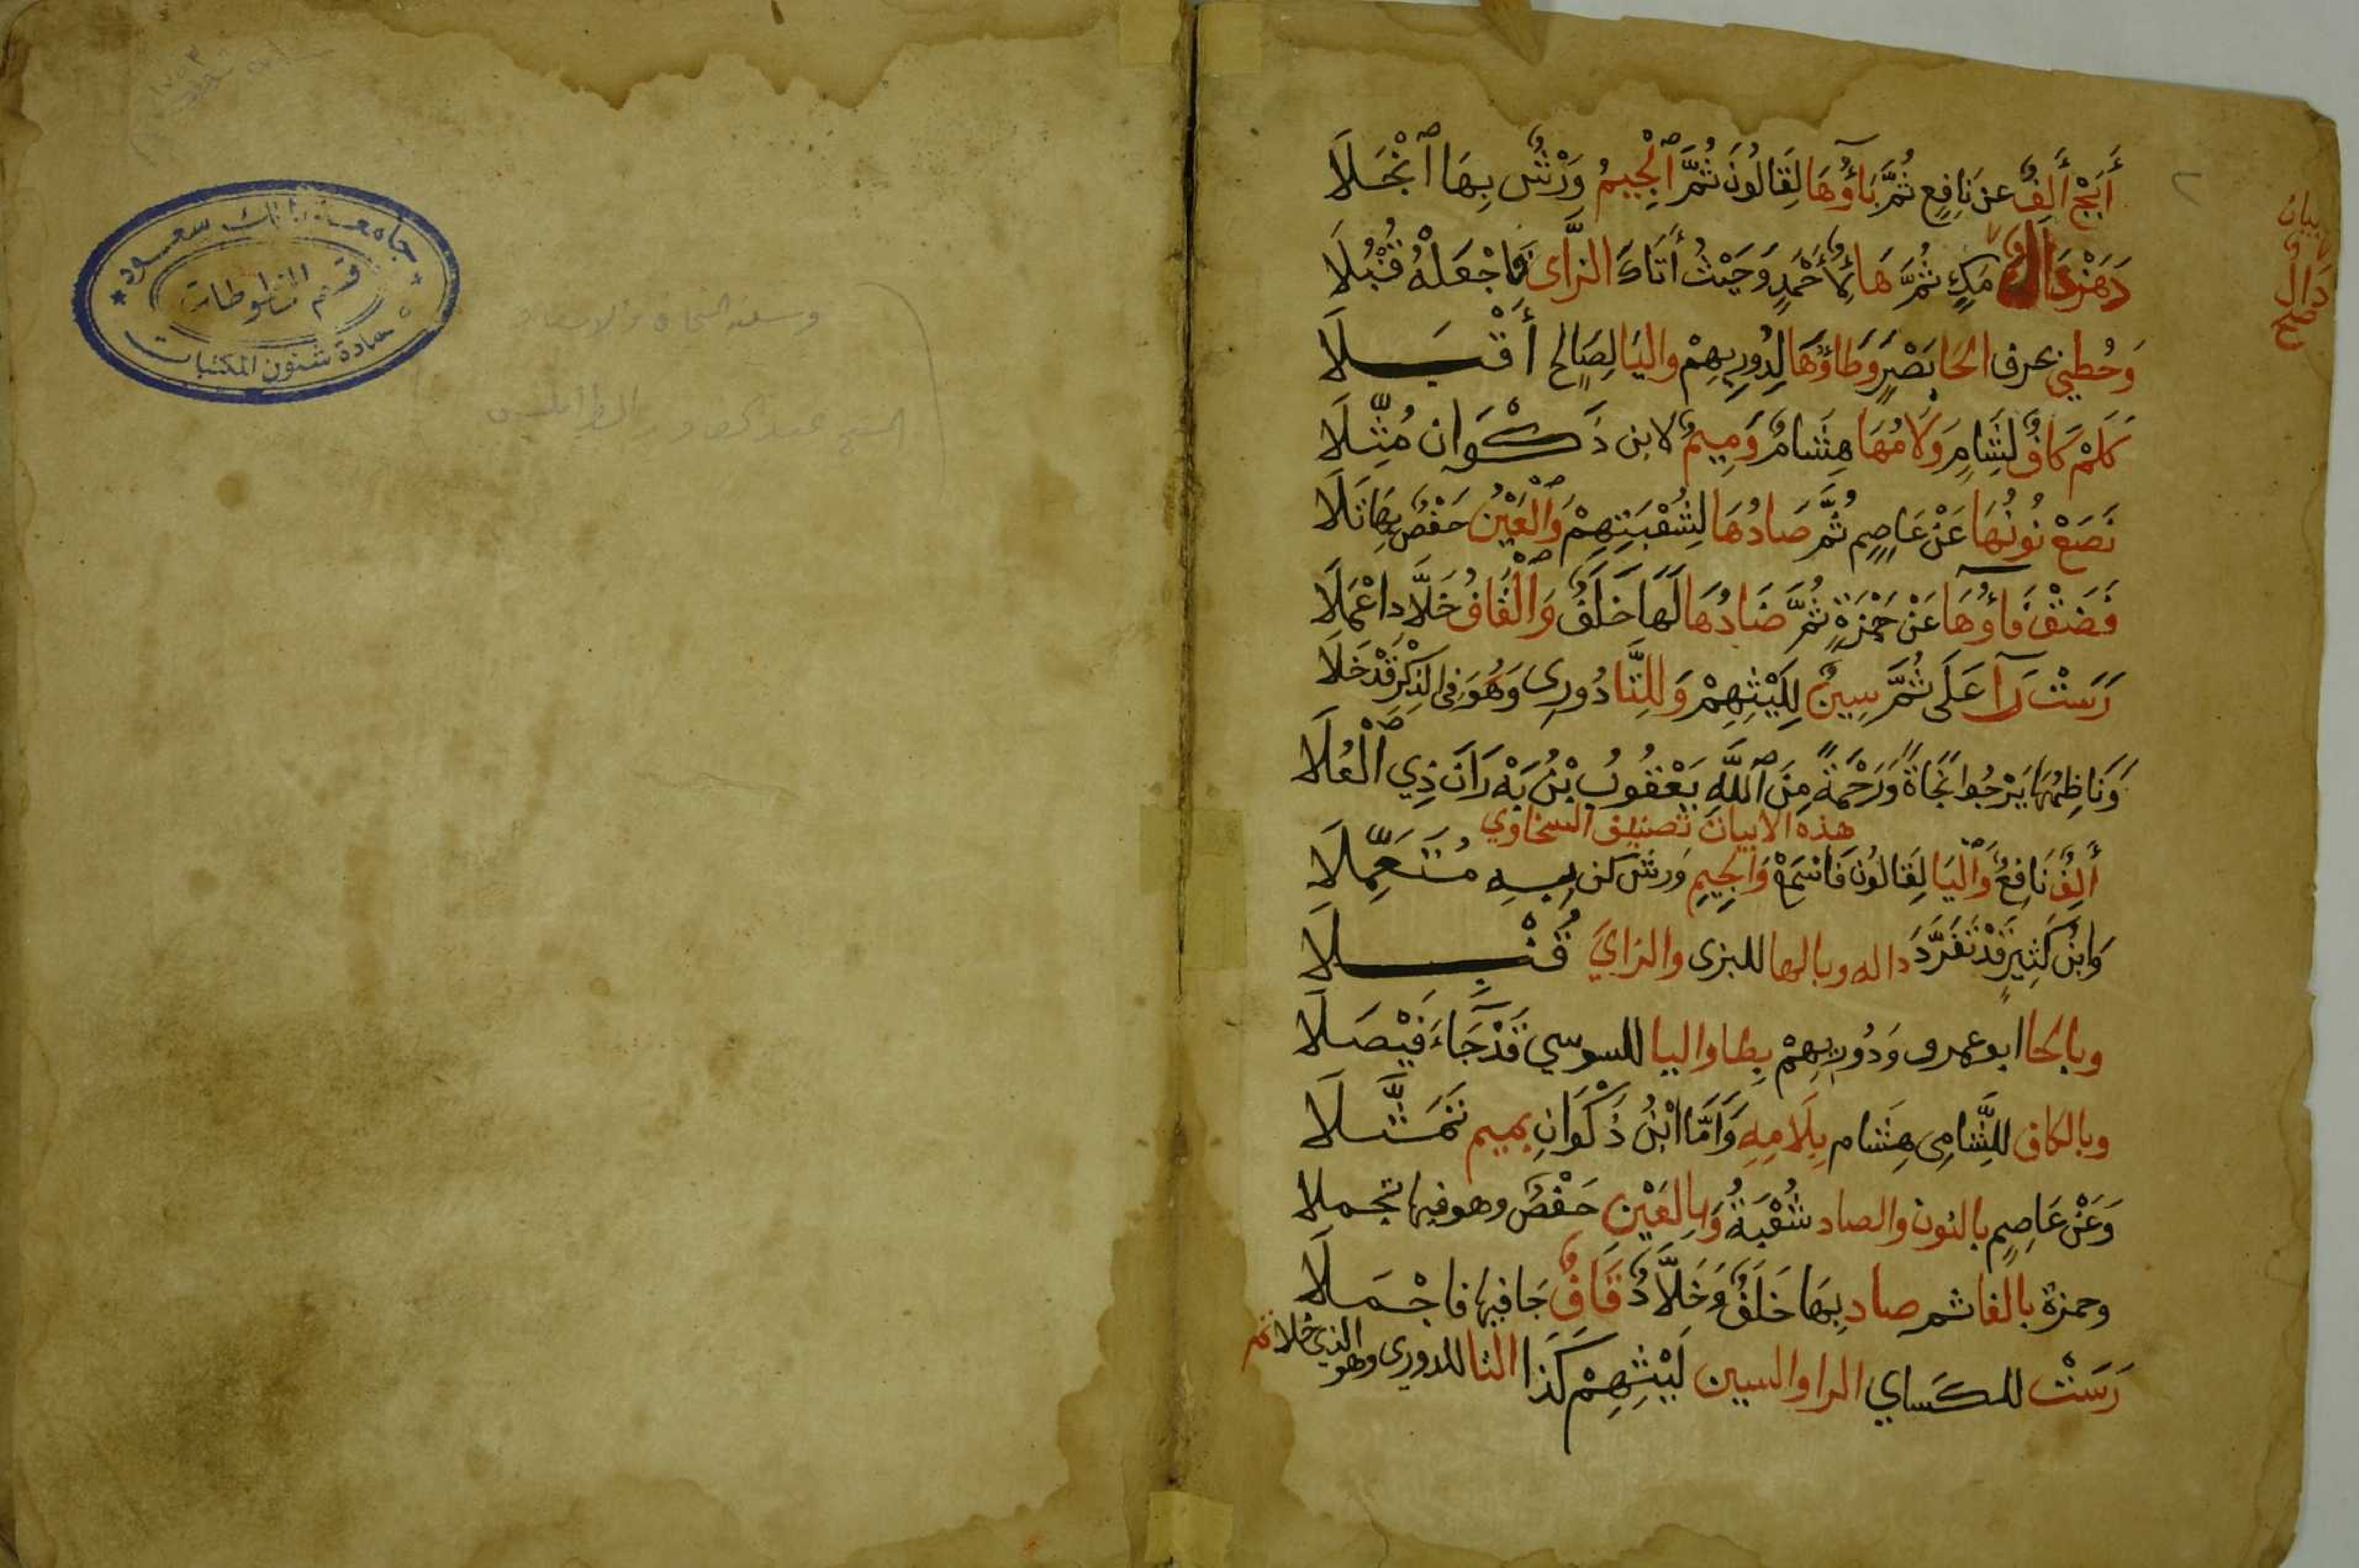 أَبَجْ أَلِفٌ عن نَافِعٍ ثُمَّ بَاؤُهَا لِقَالُونَ ثُمَّ ٱلْجِيمُ وَرْشٌ بِهَا ٱنْجَلَا
دَهَزْ دَالٌ مَكٍّ ثُمَّ هَا أَحْمَدٍ وَحَيْثُ أَتَاكَ الزَّاى فَاجْعَلْهُ قُنْبُلَا
وَحُطِّي بحرف الحَا بَصْرٍ وَطَاؤُهَا لِدُورِيهِمْ واليَا لِصَالِحٍ أَقْبَلَا
كَلَمْ كَافٌ لشَامٍ وَلَامُهَا هِشَامٌ وَمِيمٌ لابن ذَكْوَان مُثِّلَا
نَصَعْ نُونُهَا عَنْ عَاصِمٍ ثُمَّ صَادُهَا لِشُعْبَتِهِمْ وَٱلْعَيْنُ حَفْصٌ بِهَا تَلَا
فَضَقْ فَآؤُهَا عَنْ حَمْزَةٍ ثُمَّ ضَادُهَا لَهَا خَلَفٌ وَٱلْقَافُ خَلَّاد اعْمَلَا
رَسَتْ رَآ عَلَى ثُمَّ سِينٌ لِلَيْثِهِمْ وَلِلتَّا دُورِى وَهُوَ فِى الذِّكْرِ قَدْ خَلَا
وَنَاظِمُهَا يَرْجُوا نَجَاةً وَرَحْمَةً مِنَ ٱللَّهِ يَعْقُوبُ بْنُ بَدْرَانَ ذِي ٱلْعُلَا
هذه الابيات تصنيف السخاوي
أَلِفْ نَافِعٌ وَٱلْيَا لِقَالُونَ فَاسْمَعْ وَالجِيمِ وَرش كن بِهِ مُتَعَمِّلَا
وَابْنُ كَثِيرٍ قَدْ تَفَرَّدَ داله وبالها للبزى والزاي قُنْبِلَا
وبالحا ابو عمرو وَدُورِيهِمْ بِطا واليا للسوسي قَدْ جَآءَ فَيْصَلَا
وبالكاف للشَّامِى هِشَام بِلَامِهِ وَأَمَّا ابْنُ ذَكْوَانِ بميم تَمَثَّلَا
وَعَنْ عَاصِمٍ بالنون والصاد شُعْبَةٌ وَبِالعَيْنِ حَفْصٌ وهو فيها تجملا
وحمزة بالفا ثم ضاد بِهَا خَلَفٌ وَخَلَّادٌ قَافٌ جَا فيها فاجْمَلَا
رَسَتْ للكساي الرا والسين لَيْثِهِمْ كَذَا التا للدورى وهو الذي خلا تم
بيان
دال
صح
جامعة الملك سعود
قسم المخطوطات
عمادة شئون المكتبات